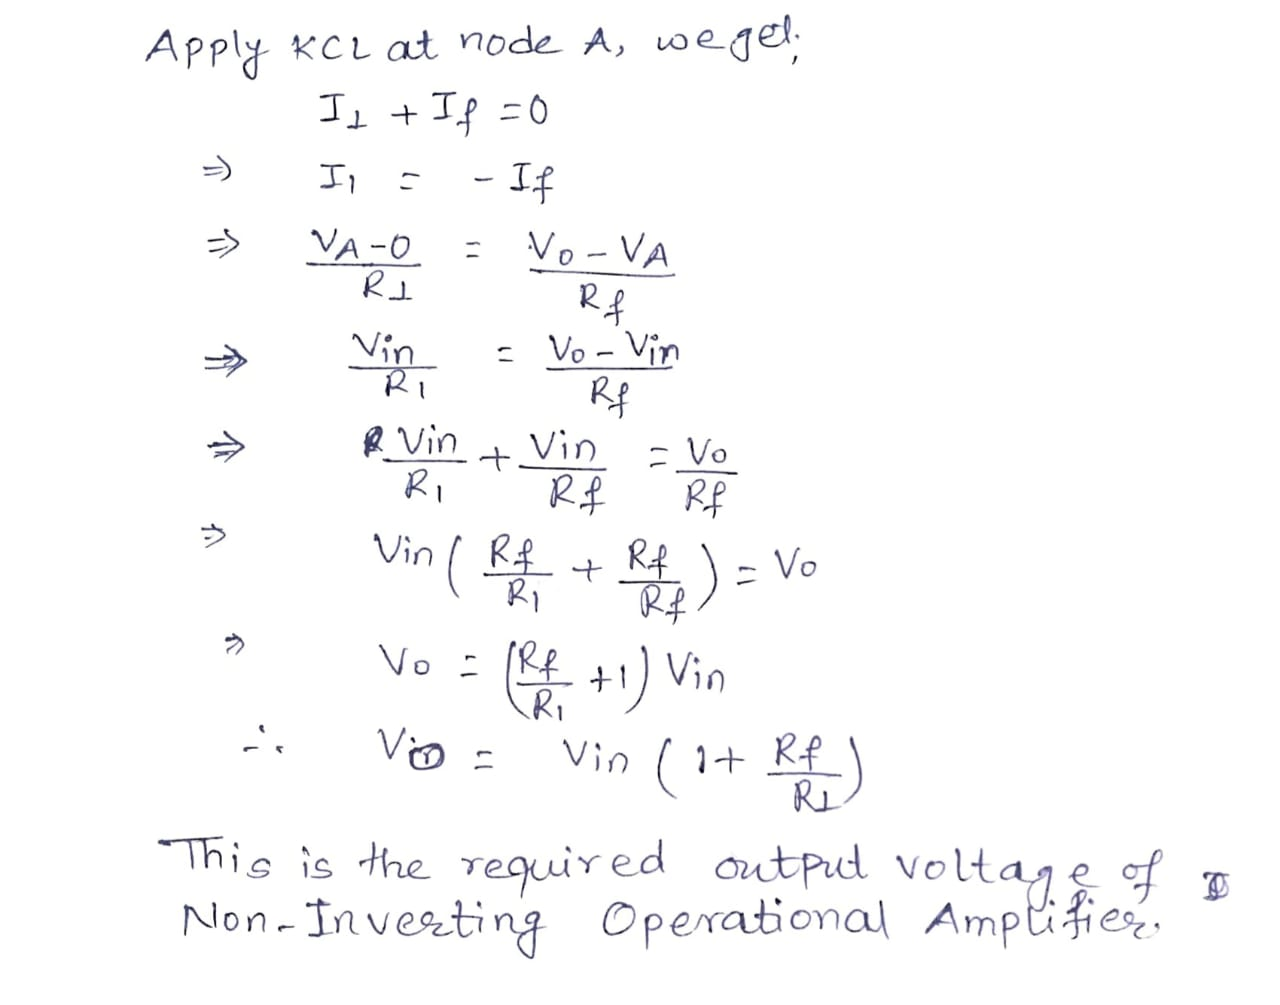 Apply KCL at node A, we get;
I1 + If = 0
⇒ I1 = - If
⇒ (VA - 0)/R1 = (Vo - VA)/Rf
⇒ Vin/R1 = (Vo - Vin)/Rf
⇒ Vin/R1 + Vin/Rf = Vo/Rf
⇒ Vin (Rf/R1 + Rf/Rf) = Vo
⇒ Vo = (Rf/R1 + 1) Vin
∴ Vo = Vin (1 + Rf/R1)
This is the required output voltage of
Non-Inverting Operational Amplifier.